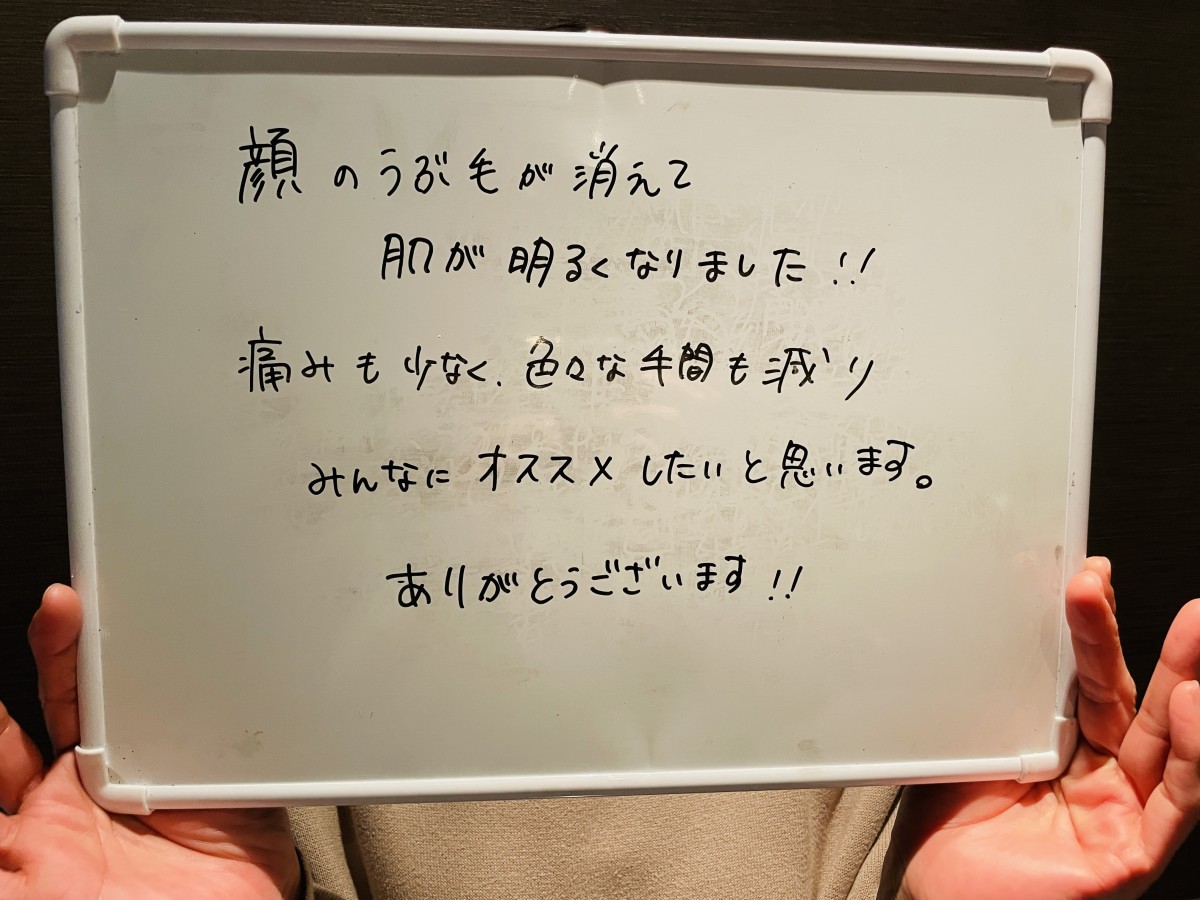 顔のうぶ毛が消えて
肌が明るくなりました!!
痛みも少なく、色々な手間も減り
みんなにオススメしたいと思います。
ありがとうございます!!